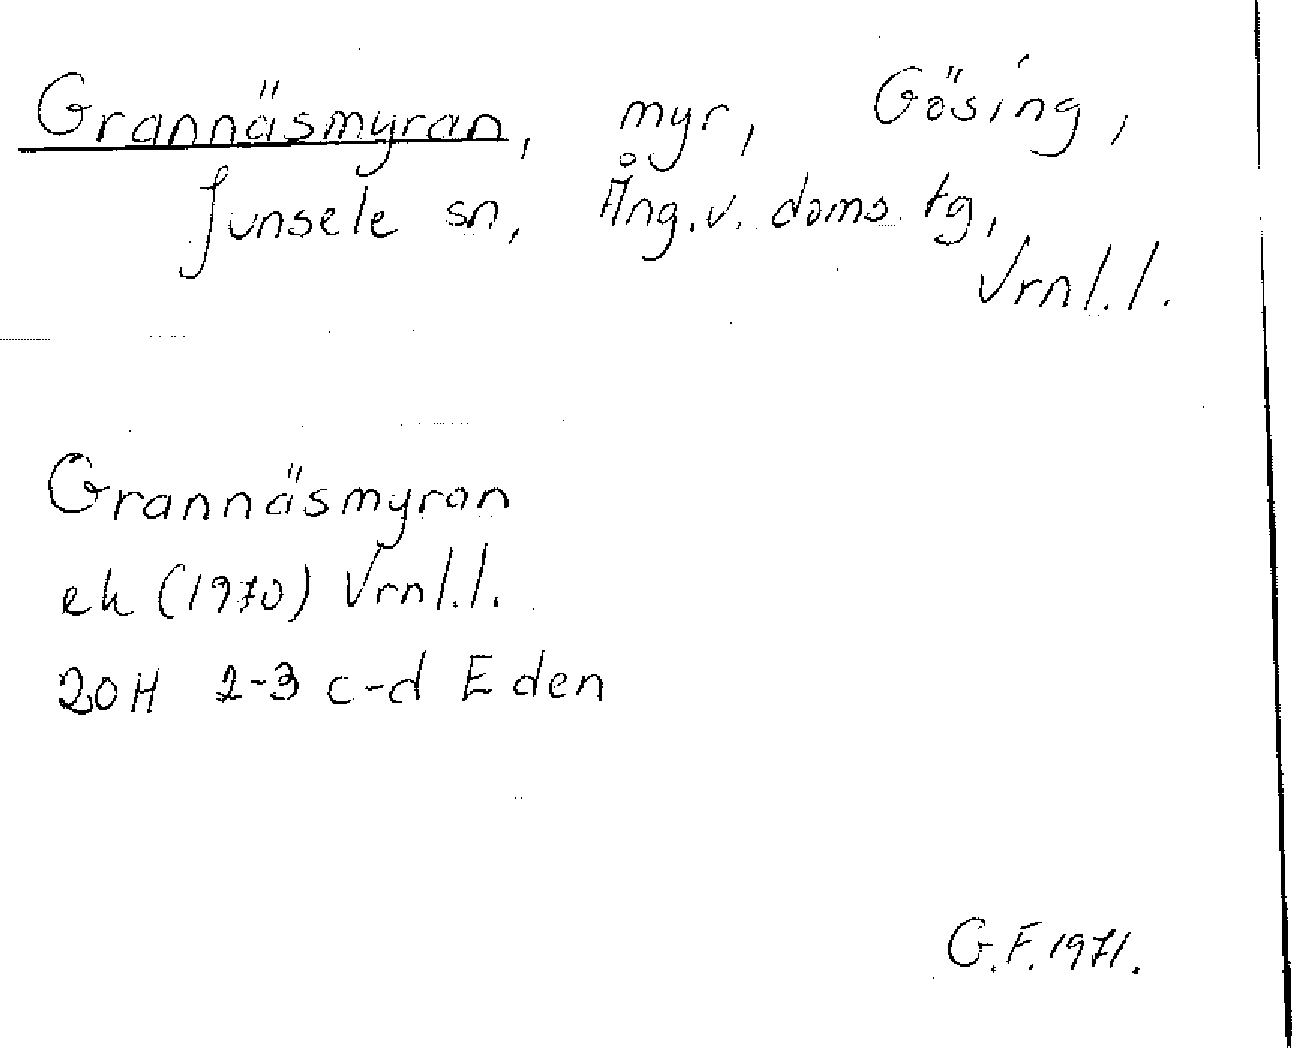 Grannäsmyran, myr, Gösing,
Junsele sn, Ång.v. doms. tg,
Vrnl.l.
Grannäsmyran
ek (1970) Vrnl.l.
20H 2-3 c-d Eden
G.F. 1971.